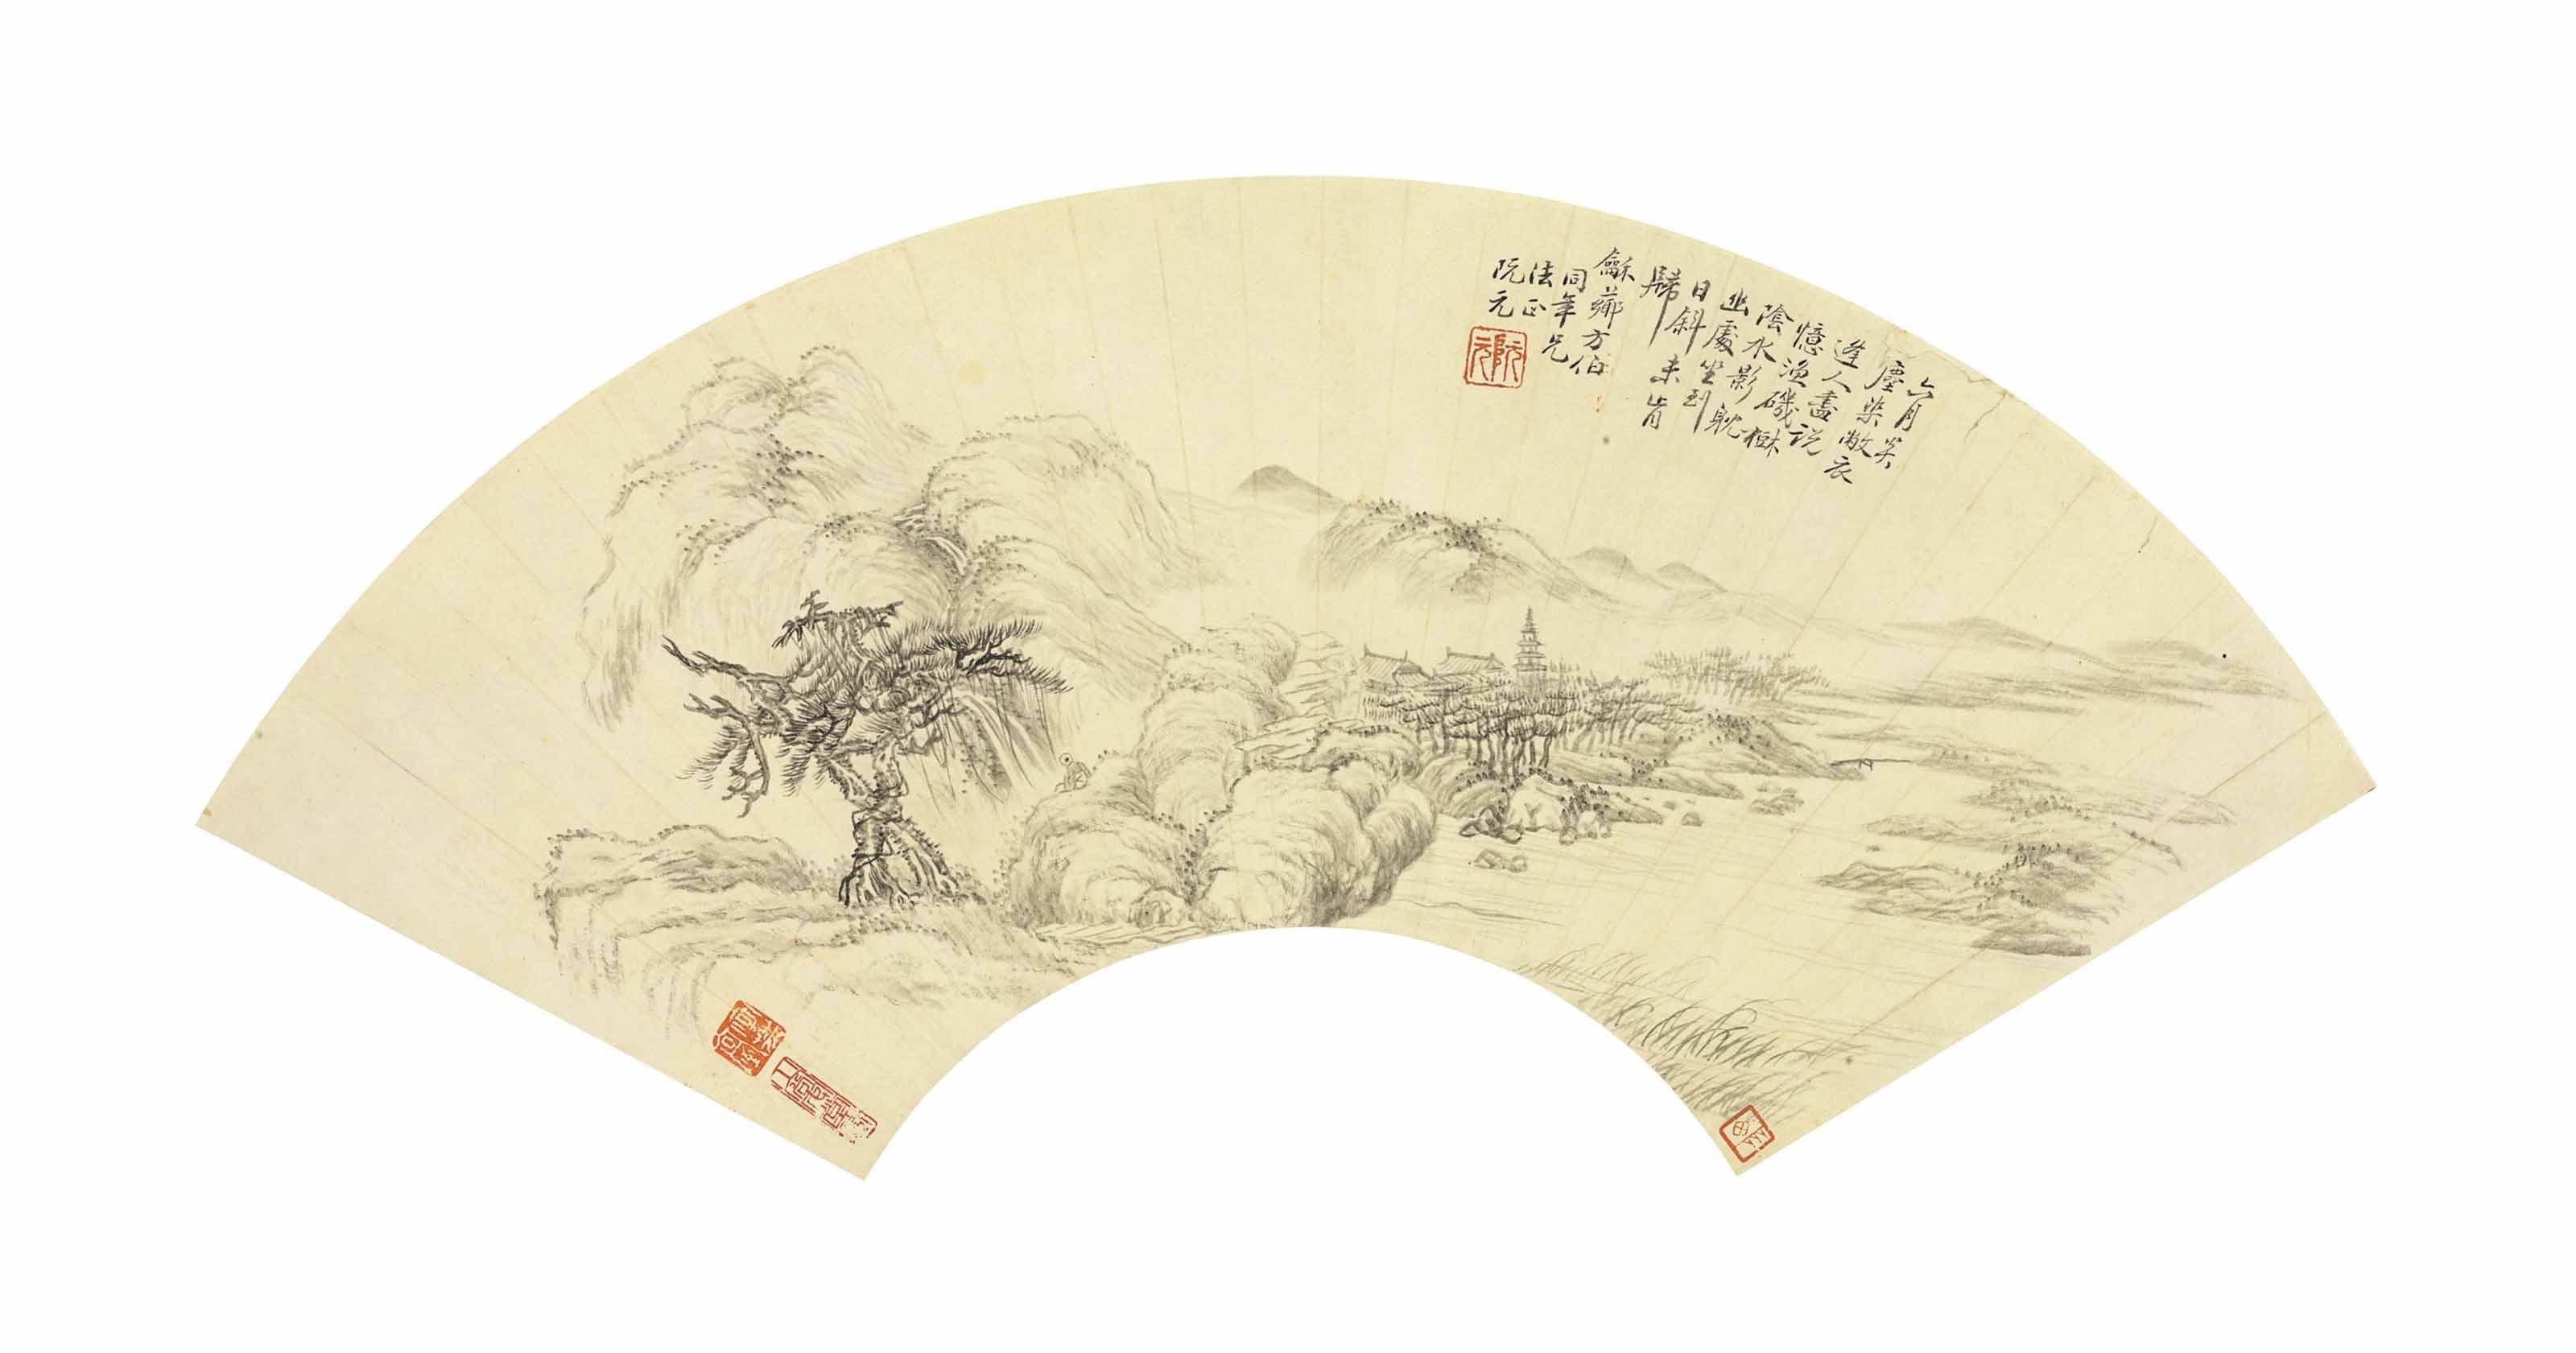 六月炎
塵染敝衣
逢人盡說
憶漁磯樹
陰水影耽
幽處坐到
日斜未肯
歸
龢薌方伯
同年兄
法正
阮元
阮元